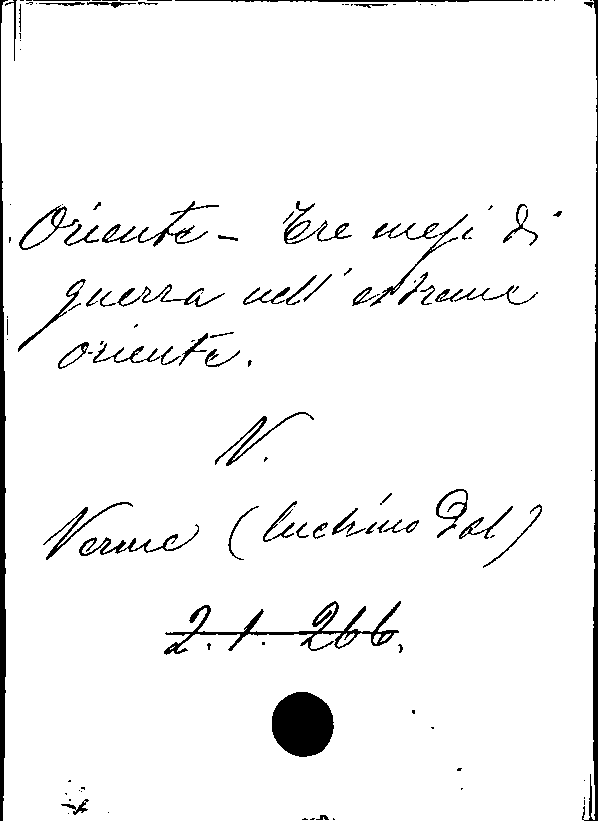 Oriente - Tre mesi di
guerra nell' estremo
oriente.
V.
Verme (Luchino Dal)
2.1.266.